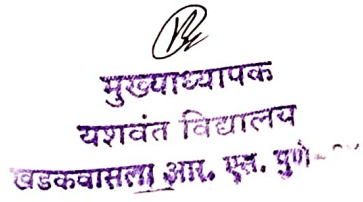 मुख्याध्यापक
यशवंत विद्यालय
खडकवासला आर. एस. पुणे